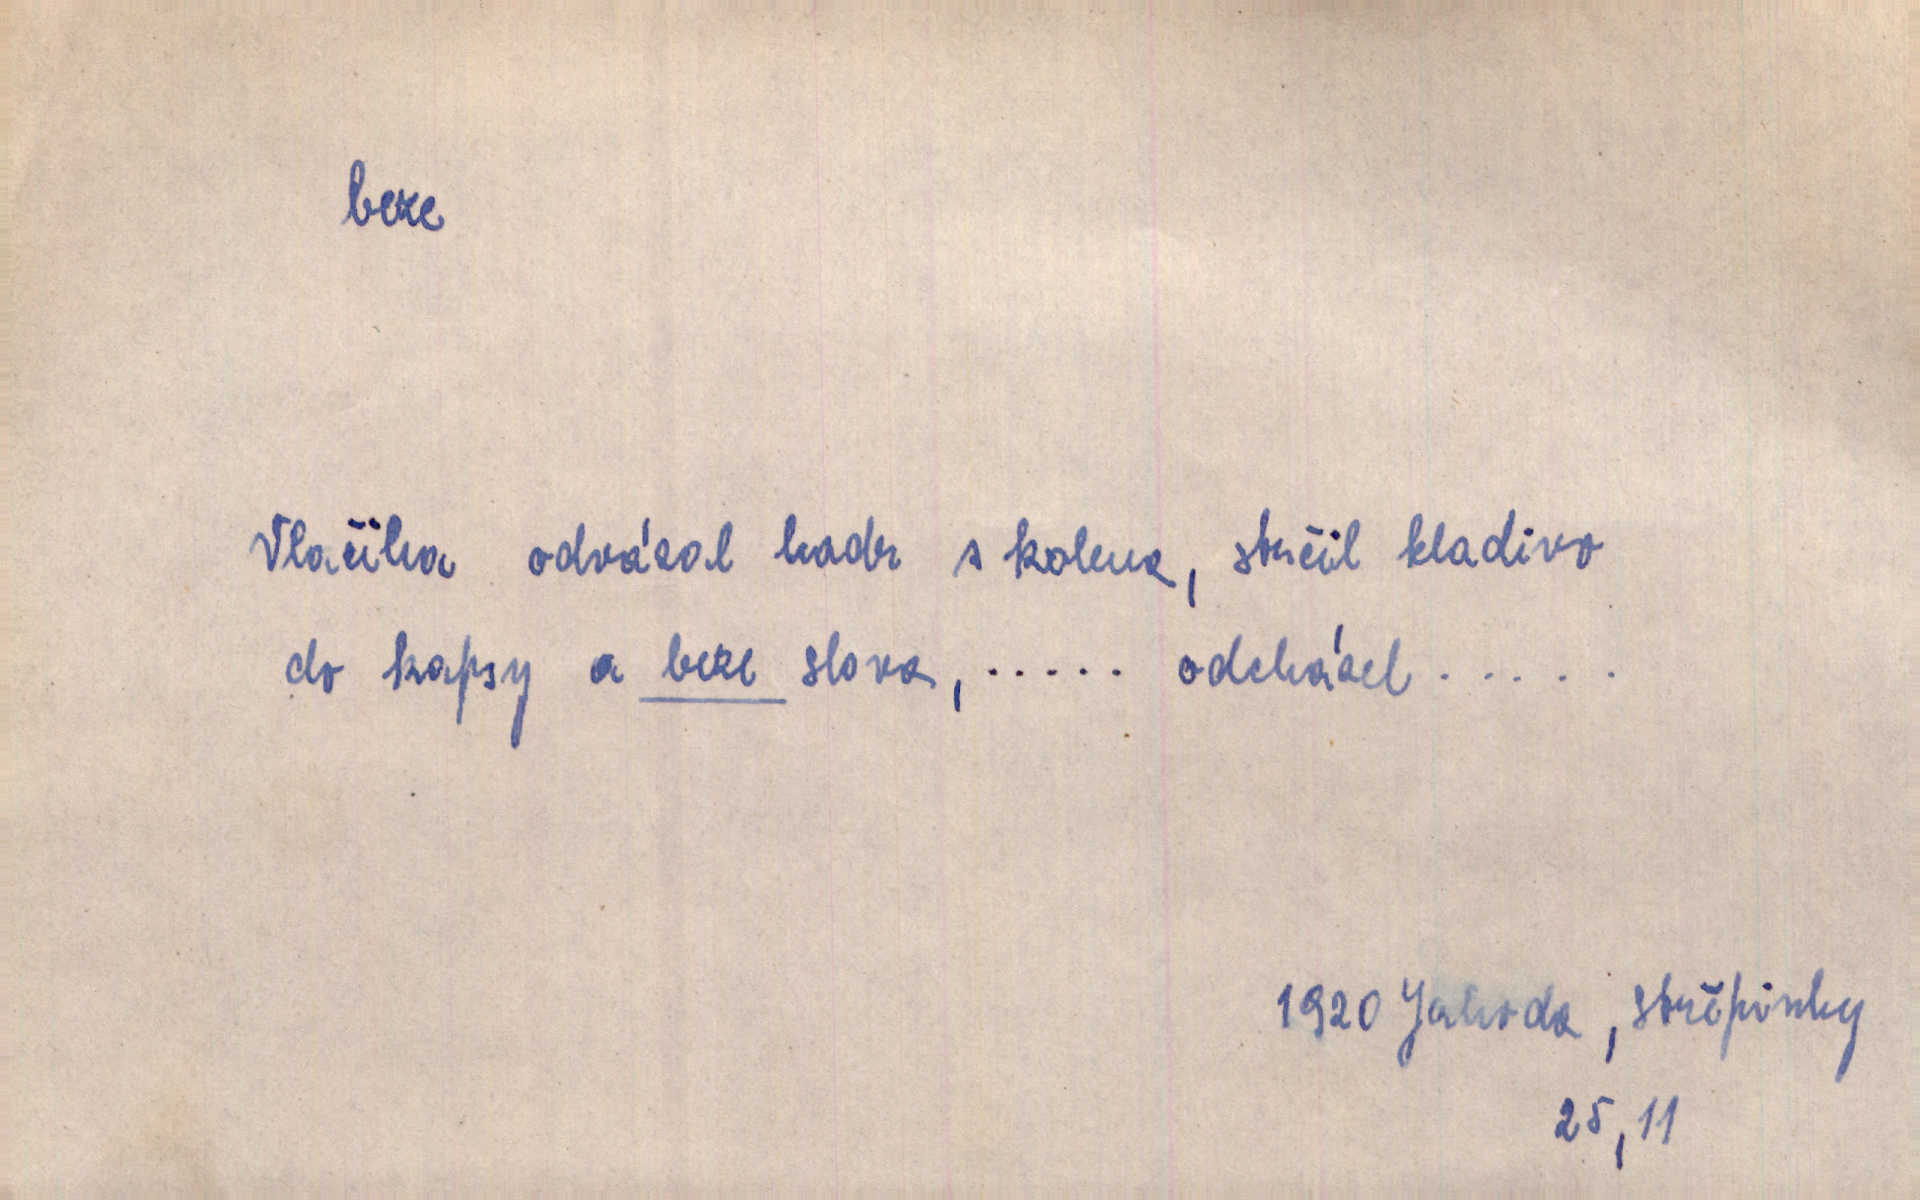 beze
Vlačiha odvázal hadr s kolena, strčil kladivo
do kapsy a beze slova, ..... odcházel .....
1920 Jahoda, Střepinky
25, 11